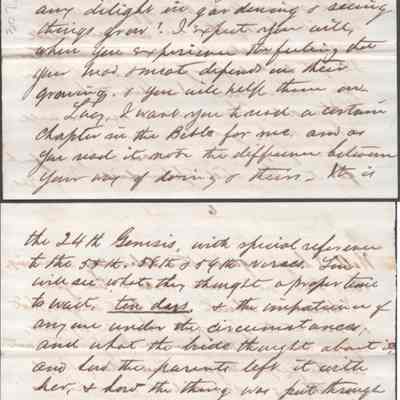 any delight in gardening & seeing
things grow! I expect you will,
when you experience the feeling that
you must depend on their
growing. & you will help them on
Lucy, I want you to read a certain
Chapter in the Bible for me. and as
you read it, note the difference between
your way of doing & theirs. It is
the 24th Genesis, with special reference
to the 55th. 58th & 59th verses. You
will see what they thought a proper time
to wait, ten days, & the impatience of
any one under the circumstances,
and what the bride thought about it,
and how the parents left it with
her, & how the thing was put through